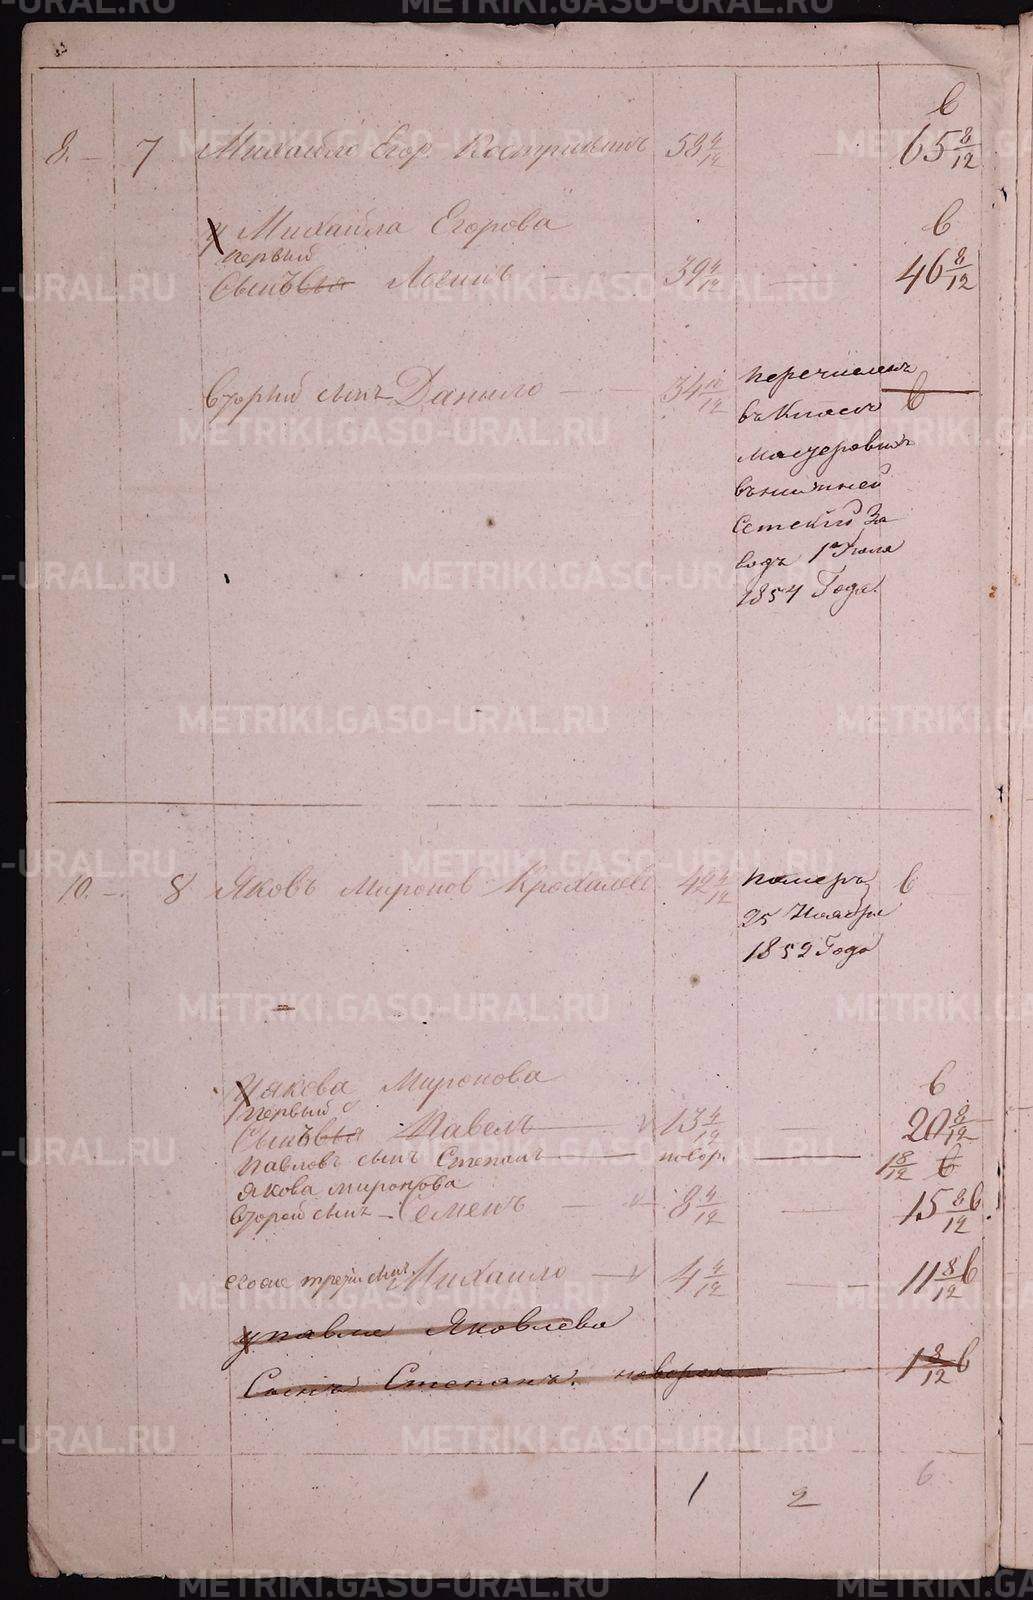 METRIKI.GASO-URAL.RU
в
8. — 7 Михайло Егор. Кострикинъ 58 4/12 — 65 8/12
у Михайла Егорова в
первый
Сынъвья Логинъ — 39 4/12 — 46 8/12
вторый сынъ Данило — 34 перечисленъ
въ в
мастеровыхъ
въ нижней
За
водъ 1го Июля
1854 Года.
10. — 8 Яковъ Миронов 49 4/12 померъ в
25 Ноября
1852 Года
у Якова Миронова в
первый
Сынъвья Павелъ — 13 4/12 — 20 8/12
Павловъ сынъ Степанъ — новор. — 1 8/12 в
Якова Миронова
второй сынъ Семенъ — 8 4/12 — 15 8/12 в
его же третий сынъ Михаило — 4 4/12 — 11 8/12 в
у павла Яковлева
Сынъ Степанъ. новорож. — 1 8/12 в
1 2 6